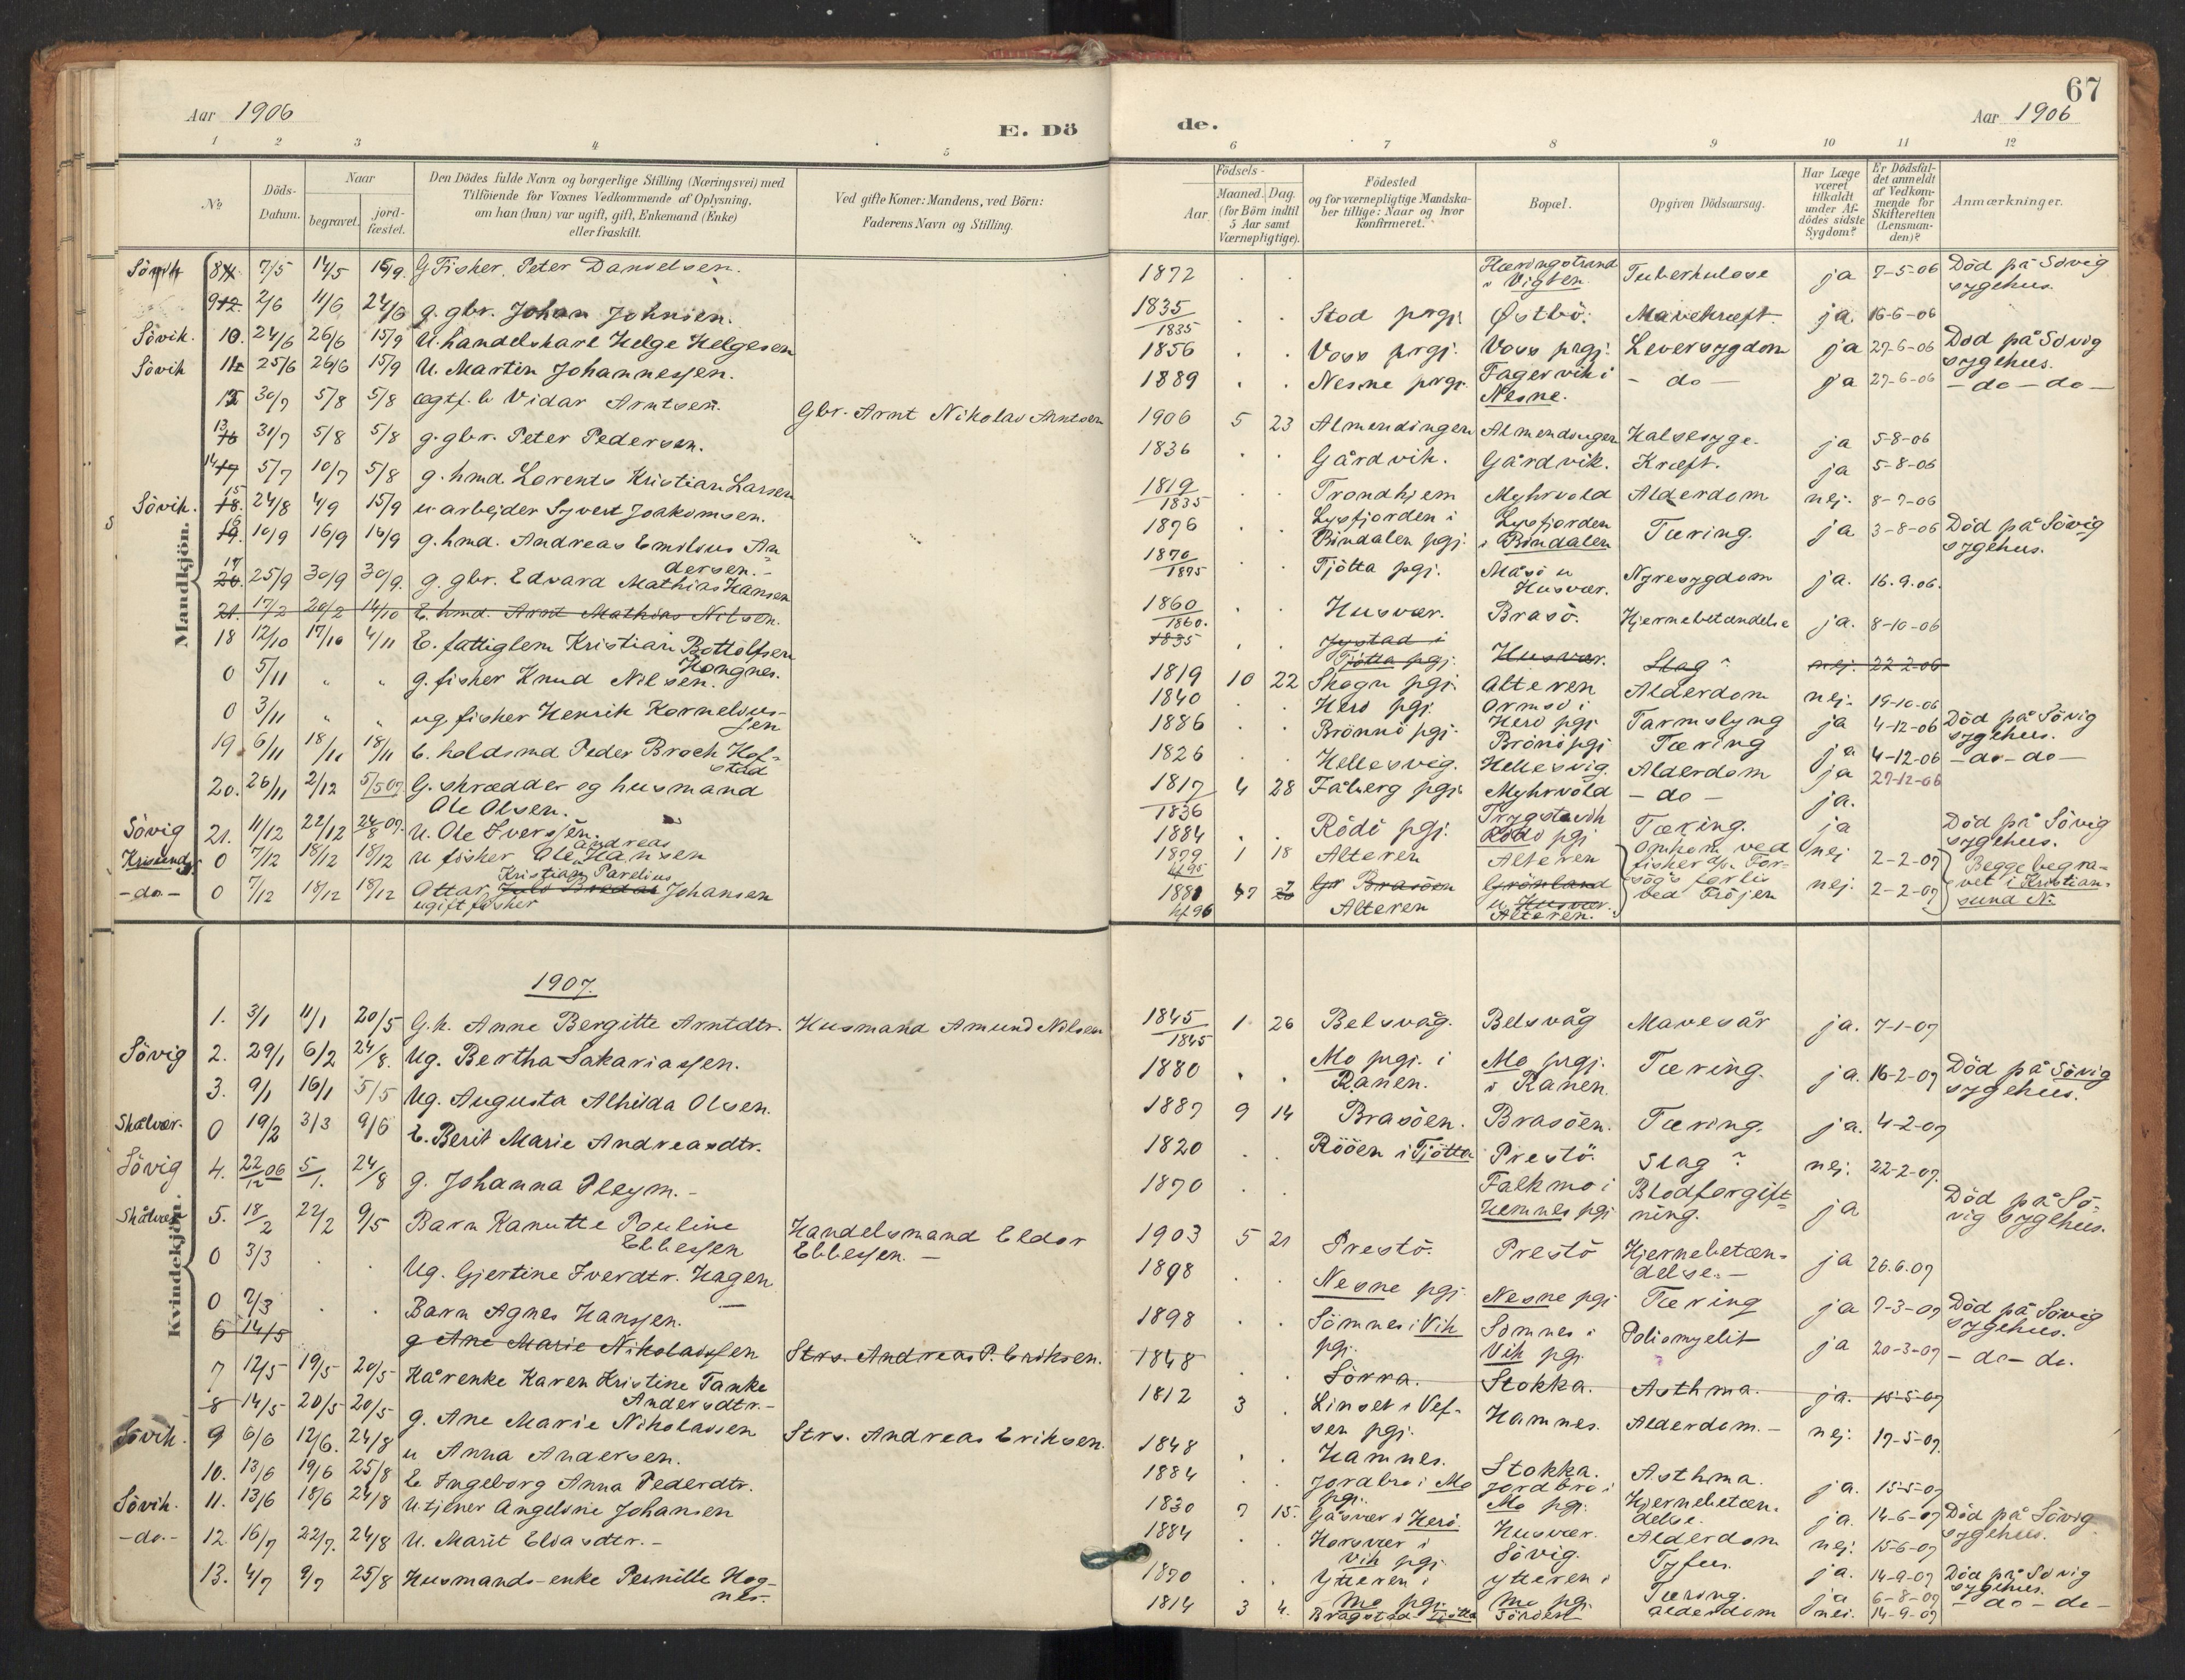 67
Aar 1906
E. Dö
de.
Aar 1906
1 2 3 4 5 6 7 8 9 10 11 12
No
Döds-
Datum.
Naar
begravet.
jord-
fæstet.
Den Dödes fulde Navn og borgerlige Stilling (Næringsvei) med
Tilföiende for Voxnes Vedkommende af Oplysning,
om han (hun) var ugift, gift, Enkemand (Enke)
eller fraskilt.
Ved gifte Koner: Mandens, ved Börn:
Faderens Navn og Stilling.
Födsels-
Aar.
Maaned. Dag.
(for Börn indtil
5 Aar samt
Værnepligtige).
Födested
og for værnepligtige Mandska-
ber tillige: Naar og hvor
konfirmeret.
Bopæl.
Opgiven Dödsaarsag.
Har Læge
været
tilkaldt
under Af-
dödes sidste
Sygdom?
Er Dödsfal-
det anmeldt
af Vedkom-
mende for
Skifteretten
(Lensman-
den)?
Anmærkninger.
Mandkjön.
Sövik 8 7/5 14/5 15/9 G Fisher Peter Danielsen. 1872 . . Hæringstrand i Vigten Tuberkulose ja 7-5-06 Död på Sövig sygehus.
9 2/6 11/6 24/6 g. gbr. Johan Johnsen. 1835/1835 . . Stod prgj Østbö. Mavekræft. ja. 16-6-06
Sövik. 10. 24/6 26/6 15/9 U. handelskarl Helge Helgesen 1856 . . Voss prgj. Voss prgj. Leversygdom ja 27-6-06 Död på Sövig sygehus.
Sövik 11 25/6 26/6 15/9 U. Martin Johannessen. 1889 . . Nesne prgj. Fagervik i Nesne. - do - ja 27-6-06 - do - do -
12 30/7 5/8 5/8 ægtf. b Vidar Arntsen. Gbr. Arnt Nikolas Arntsen 1906 5 23 Almendingen Almendingen Halsesyge. ja 5-8-06
13 31/7 5/8 5/8 g. gbr. Peter Pedersen. 1836 . . Gårdvik. Gårdvik. Kræft. ja 5-8-06
14 5/7 10/7 5/8 g. hmd. Lorents Kristian Larsen 1819/1835 . . Trondhjem Myhrvold Alderdom nej. 8-7-06
Sövik. 15 24/8 4/9 15/9 u arbejder Syvert Joakomsen. 1876 . . Lysfjorden i Bindalen pgj. Lysfjorden i Bindalen Tæring. ja 3-8-06 Död på Sövig sygehus.
16 10/9 16/9 16/9 g. hmd. Andreas Emilius An-
dersen. - 1870/1875 . Tjötta pgj. Måsö u Husvær. Nyresygdom ja. 16.9.06.
17 25/9 30/9 30/9. g. gbr. Edvard Mathias Hansen 1860/1860. . . Husvær. Brasö. Hjernebetændelse ja. 8-10-06
21. 17/2 20/2 14/10 E. hmd. Arnt Mathias Nilsen. 1835 . . Tjötta pgj. Husvær. Slag? nej. 22-2-06
18 12/10 17/10 4/11 E. fattiglem Kristian Bottolfsen
Hongnes. 1819 10 22 Skogn pgj. Alteren Alderdom nej. 19-10-06
0 5/11 " " g. fisher Knud Nilsen. 1840 . . Herö pgj. Ormsö i Herö pgj. Tarmslyng ja 4-12-06 Död på Sövig sygehus.
0 3/11 " " ug. fisher Henrik Kornelius-
sen 1886 . Brönnö pgj. Brönö pgj Tæring ja 4-12-06 - do - do -
19. 6/11 18/11 18/11 E. holdsmd Peder Broch Hof-
stad 1826 . . Hellesvig. Hellesvig. Alderdom ja 27-12-06
20. 26/11 2/12 5/5 07 G. skrædder og husmand
Ole Olsen. 1817/1836 4 28 Fåberg pgj. Myhrvold - do - ja.
Sövig 21. 11/12 22/12 24/8 07. U. Ole Iversen. 1884 . . Rödö pgj. Rödö pgj Tæring. ja Död på Sövig sygehus.
Krisund 0 7/12 18/12 18/12 u fisher Ole Andreas Hansen 1879 1 18 Alteren Alteren Omkom ved fisher nej 2-2-07 Begge begra-
-do- 0 7/12 18/12 18/12 Ottar Kristian Parelius Johansen
ugift fisher 1881 7 Alteren Alteren. forlis ved Fröjen nej. 2-2-07 vet i Kristian-
sund N.
1907.
Kvindekjön.
1. 3/1 11/1 20/5 G.k. Anne Bergitte Arntdtr. Husmand Amund Nilsen 1845/1845 1 26 Belsvåg. Belsvåg Mavesår ja. 7-1-07
Sövig 2. 29/1 6/2 24/8. Ug. Bertha Sakariassen. 1880 . . Mo prgj. i Ranen. Mo prgj. i Ranen. Tæring. ja. 16-2-07 Död på Sövig sygehus.
3. 9/1 16/1 5/5 Ug. Augusta Alhilda Olsen. 1887 9 14 Brasöen. Brasöen. Tæring. ja. 4-2-07
Skålvær. 0 19/2 3/3 9/6 E. Berit Marie Andreasdtr. 1820 . . Rööen i Tjötta Prestö. Slag? nej. 22-2-07.
Sövig 4. 22/12 06 5/1. 24/8 g. Johanna Pleym. - 1870 . . Falkmo i Hemnes pgj Blodforgift-
ning. ja Död på Sö-
vig sygehus.
Skålvær 5. 18/2 22/2 9/5 Barn Kanutte Pauline
Ebbessen Handelsmand Eldor
Ebbessen. - 1903 5 21 Prestö. Prestö Hjernebetæn-
delse. - ja 26.6.07
0 3/3 . . Ug. Gjertine Iverdtr. Hagen 1898 . . Nesne pgj. Nesne pgj Tæring ja 7-3-07 Död på Sövig sygehus.
0 7/3 . . Barn Agnes Hanssen. 1898 . . Sömnes i Vik pgj. Sömnes i Vik pgj. Poliomyelit ja 20-3-07 - do - do.
6 14/5 g Ane Marie Nikolaissen Strs. Andreas P. Eriksen. 1848 . . Sörra. Stokka. Asthma. ja. 15-5-07
7 12/5 19/5 20/5 Kårenke Karen Kristine Tanke
Andersdtr. - 1812 3 . Linset i Vef-
sen pgj. Hamnes. Alderdom. - nej. 17-5-07.
8 14/5 20/5 20/5 g. Ane Marie Nikolaisen Strs. Andreas Eriksen. 1848 . Hamnes. Stokka. Asthma. ja. 15-5-07
Sövik. 9 6/6 12/6. 24/8 u Anna Andersen. 1884 . Jordbro i Mo pgj. Jordbro i Mo pgj. Hjernebetæn-
delse. ja. 14-6-07 Död på Sövig sygehus.
10. 13/6 19/6 25/8 E Ingeborg Anna Pederdtr. 1830 7 15. Gåsvær i Herö. Husvær. Alderdom nej. 15-6-07
Sövik. 11. 13/6 18/6 24/8 U. tjener Angeline Johansen 1884 . . Horsvær i Vik pgj. Sövig. Tyfus. ja. 14-9-07 Död på Sövig sygehus.
-do- 12. 16/7 22/7. 24/8 U. Marit Eliasdtr. - 1870 . . Ytteren i Mo pgj. ytteren i Mo pgj. Tæring. ja 6-8-07 - do - do -
13. 4/7 9/7 25/8 Husmands-enke Pernille Hog-
nes. 1814 3 4. Bragstad Tjötta Alderdom nei. 14-9-07